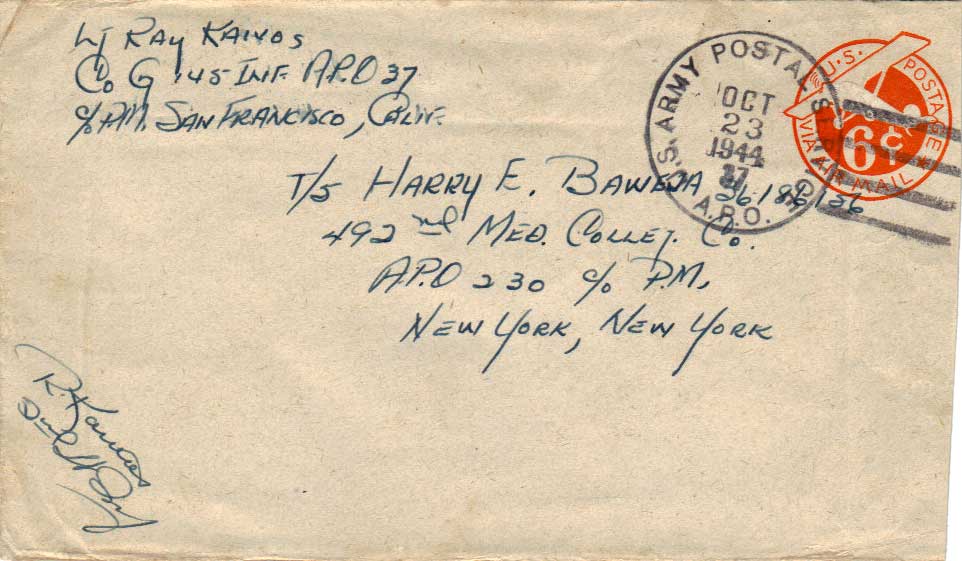 Lt RAY KAINOS
Co G 145 INF. A.P.O 37
c/o P.M. SAN FRANCISCO, CALIF.
U.S. ARMY POSTAL
OCT
23
1944
A.P.O.
U.S. POSTAGE
6¢
VIA AIR MAIL
T/5 HARRY E. BAWEJA 36186136
492nd MED. COLLET. Co.
A.P.O 230 c/o P.M.
NEW YORK, NEW YORK
R. Kainos
2nd Lt Inf